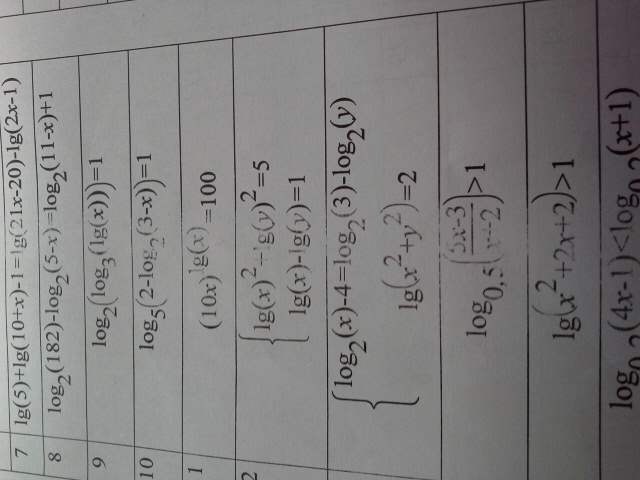 7 lg(5)+lg(10+x)-1=lg(21x-20)-lg(2x-1)
8 log₂(182)-log₂(5-x)=log₂(11-x)+1
9 log₂(log₃(lg(x)))=1
10 log₅(2-log₂(3-x))=1
1 (10x)^lg(x)=100
2 {lg(x)²+lg(y)²=5
lg(x)-lg(y)=1
{log₂(x)-4=log₂(3)-log₂(y)
lg(x²+y²)=2
log₀,₅((2x-3)/(x+2))>1
lg(x²+2x+2)>1
log₀,₂(4x-1)<log₀,₂(x+1)